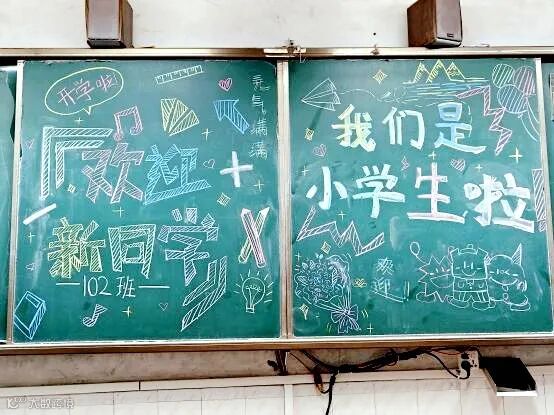 开学啦
元气满满
欢迎
新同学
102班
我们是
小学生啦
欢迎!!
大数跨境